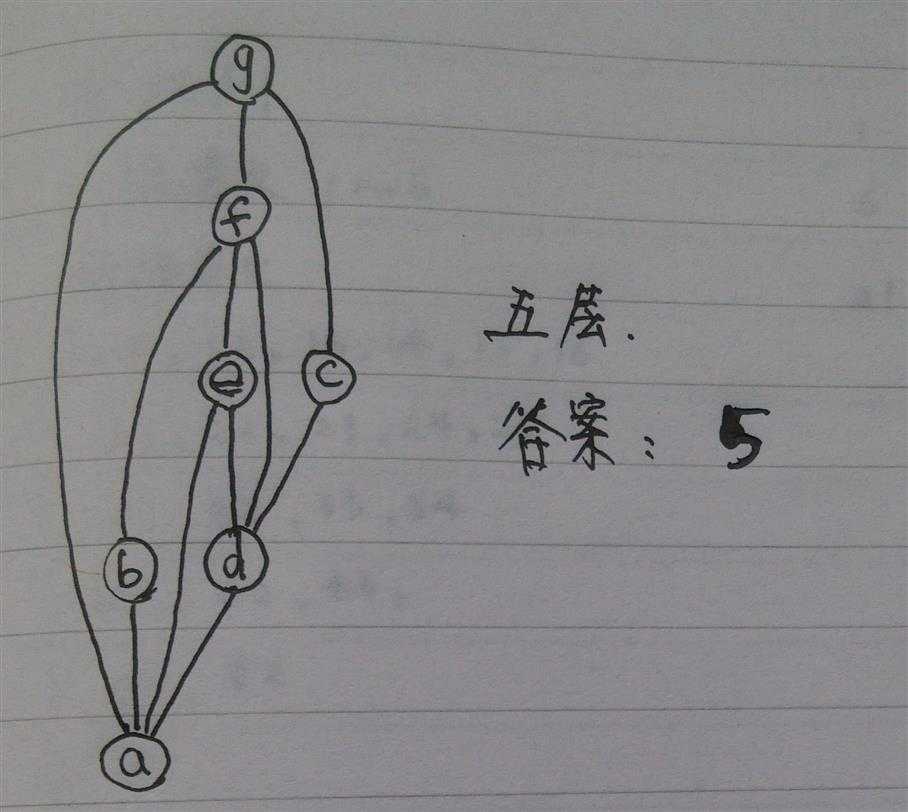 g
f
e
c
b
d
a
五层.
答案: 5